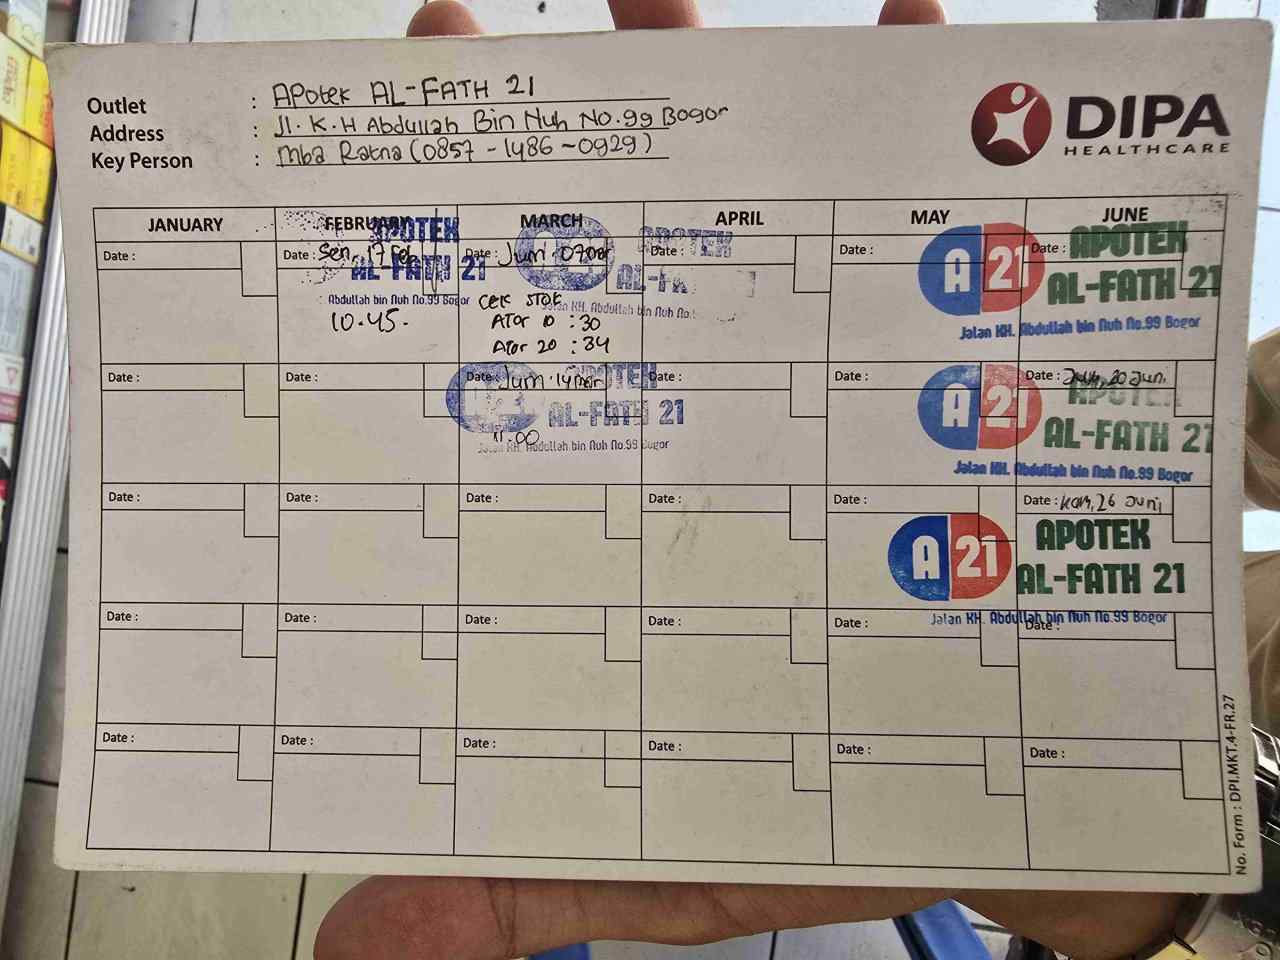 Outlet : APotek AL-FATH 21
Address : Jl. K.H Abdullah Bin Nuh No.99 Bogor
Key Person : Mba Ratna (0857-1486-0929)
DIPA
HEALTHCARE
JANUARY FEBRUARY MARCH APRIL MAY JUNE
Date : Date : Sen, 17 Feb Date : Jum 07 Mar Date : Date : Date :
APOTEK
AL-FATH 21
Abdullah bin Nuh No.99 Bogor
10.45.
APOTEK
Jalan KH. Abdullah bin Nuh No.
Cek STOK
ATor 10 : 30
ATor 20 : 34
A 21 APOTEK
AL-FATH 21
Jalan KH. Abdullah bin Nuh No.99 Bogor
Date : Date : Date : Jum. 14 Mar Date : Date : Date : 20 Juni
APOTEK
AL-FATH 21
11.00
Jalan KH. Abdullah bin Nuh No.99 Bogor
A 21 APOTEK
AL-FATH 21
Jalan KH. Abdullah bin Nuh No.99 Bogor
Date : Date : Date : Date : Date : Date : Kam, 26 Juni
A 21 APOTEK
AL-FATH 21
Jalan KH. Abdullah bin Nuh No.99 Bogor
Date : Date : Date : Date : Date : Date :
Date : Date : Date : Date : Date : Date :
No. Form : DPI.MKT.4-FR.27